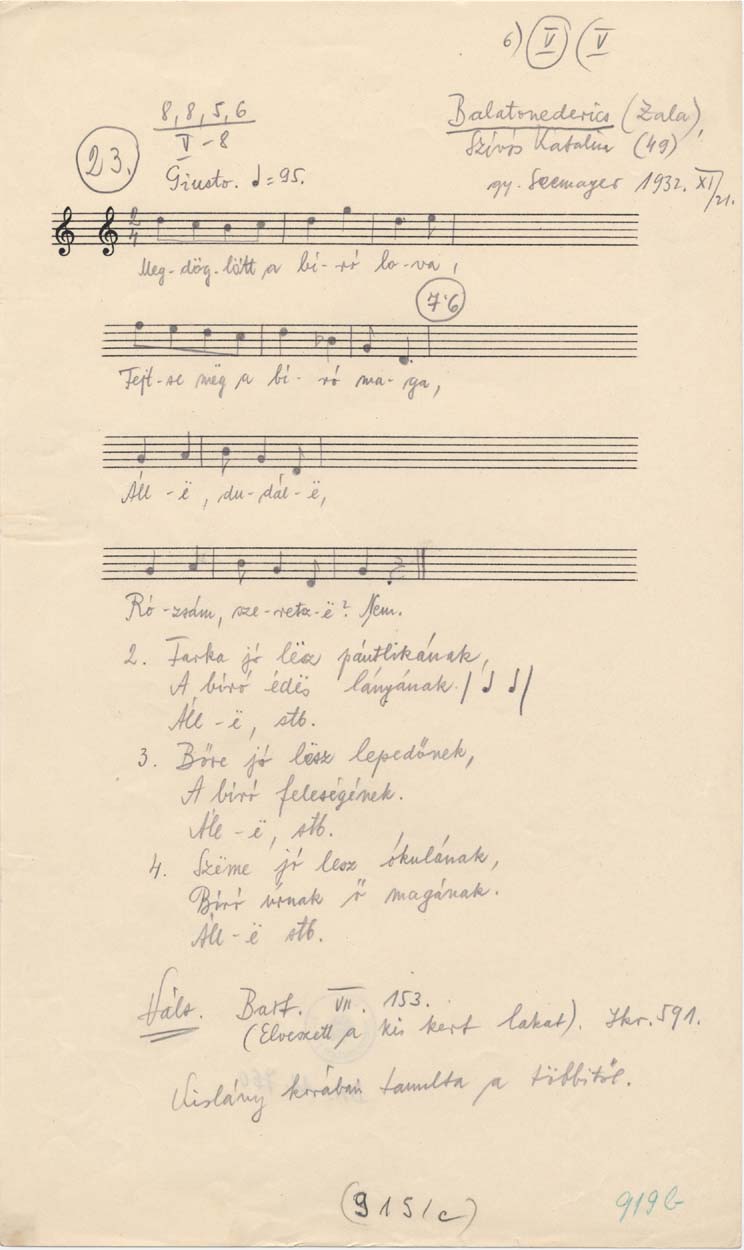 6) V (V
8, 8, 5, 6
V - 8
23.
Giusto. ♩= 95.
Balatonederics (Zala),
Szívós Katalin (49)
gy. Seemayer 1932. XI/21.
2/4
Meg-dög-lött a bí-ró lo-va,
7·6
Fejt-se mëg a bí-ró ma-ga,
Áll-ë, du-dál-ë,
Ró-zsám, sze-retsz-ë? Nem.
2. Farka jó lësz pántlikának,
A bíró édës lányának. / ♩ ♩ /
Áll-ë, stb.
3. Bőre jó lësz lepedőnek,
A bíró feleségének.
Áll-ë, stb.
4. Szëme jó lesz ókulának,
Bíró úrnak ő magának.
Áll-ë stb.
Vált. Bart. VII. 153.
(Elveszett a kis kert lakat). 591.
Kislány korában tanulta a többitől.
(915/c)
919b